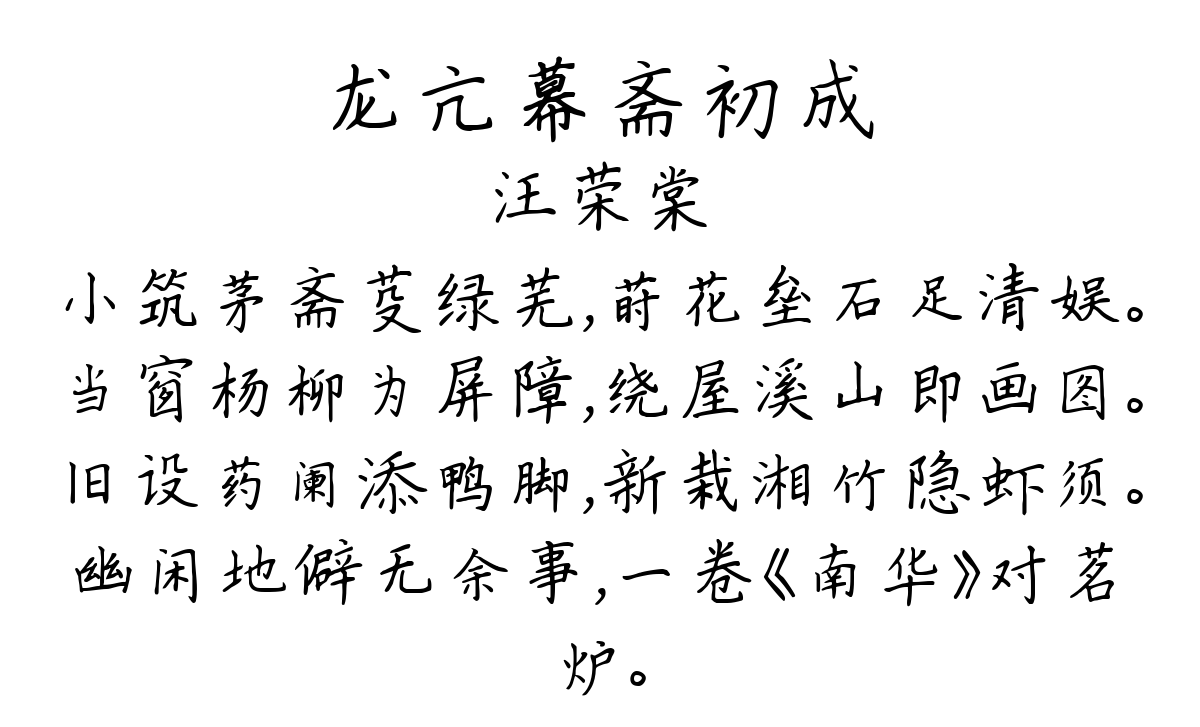 龙亢幕斋初成
汪荣棠
小筑茅斋芟绿芜,莳花垒石足清娱。
当窗杨柳为屏障,绕屋溪山即画图。
旧设药阑添鸭脚,新栽湘竹隐虾须。
幽闲地僻无余事,一卷《南华》对茗
炉。